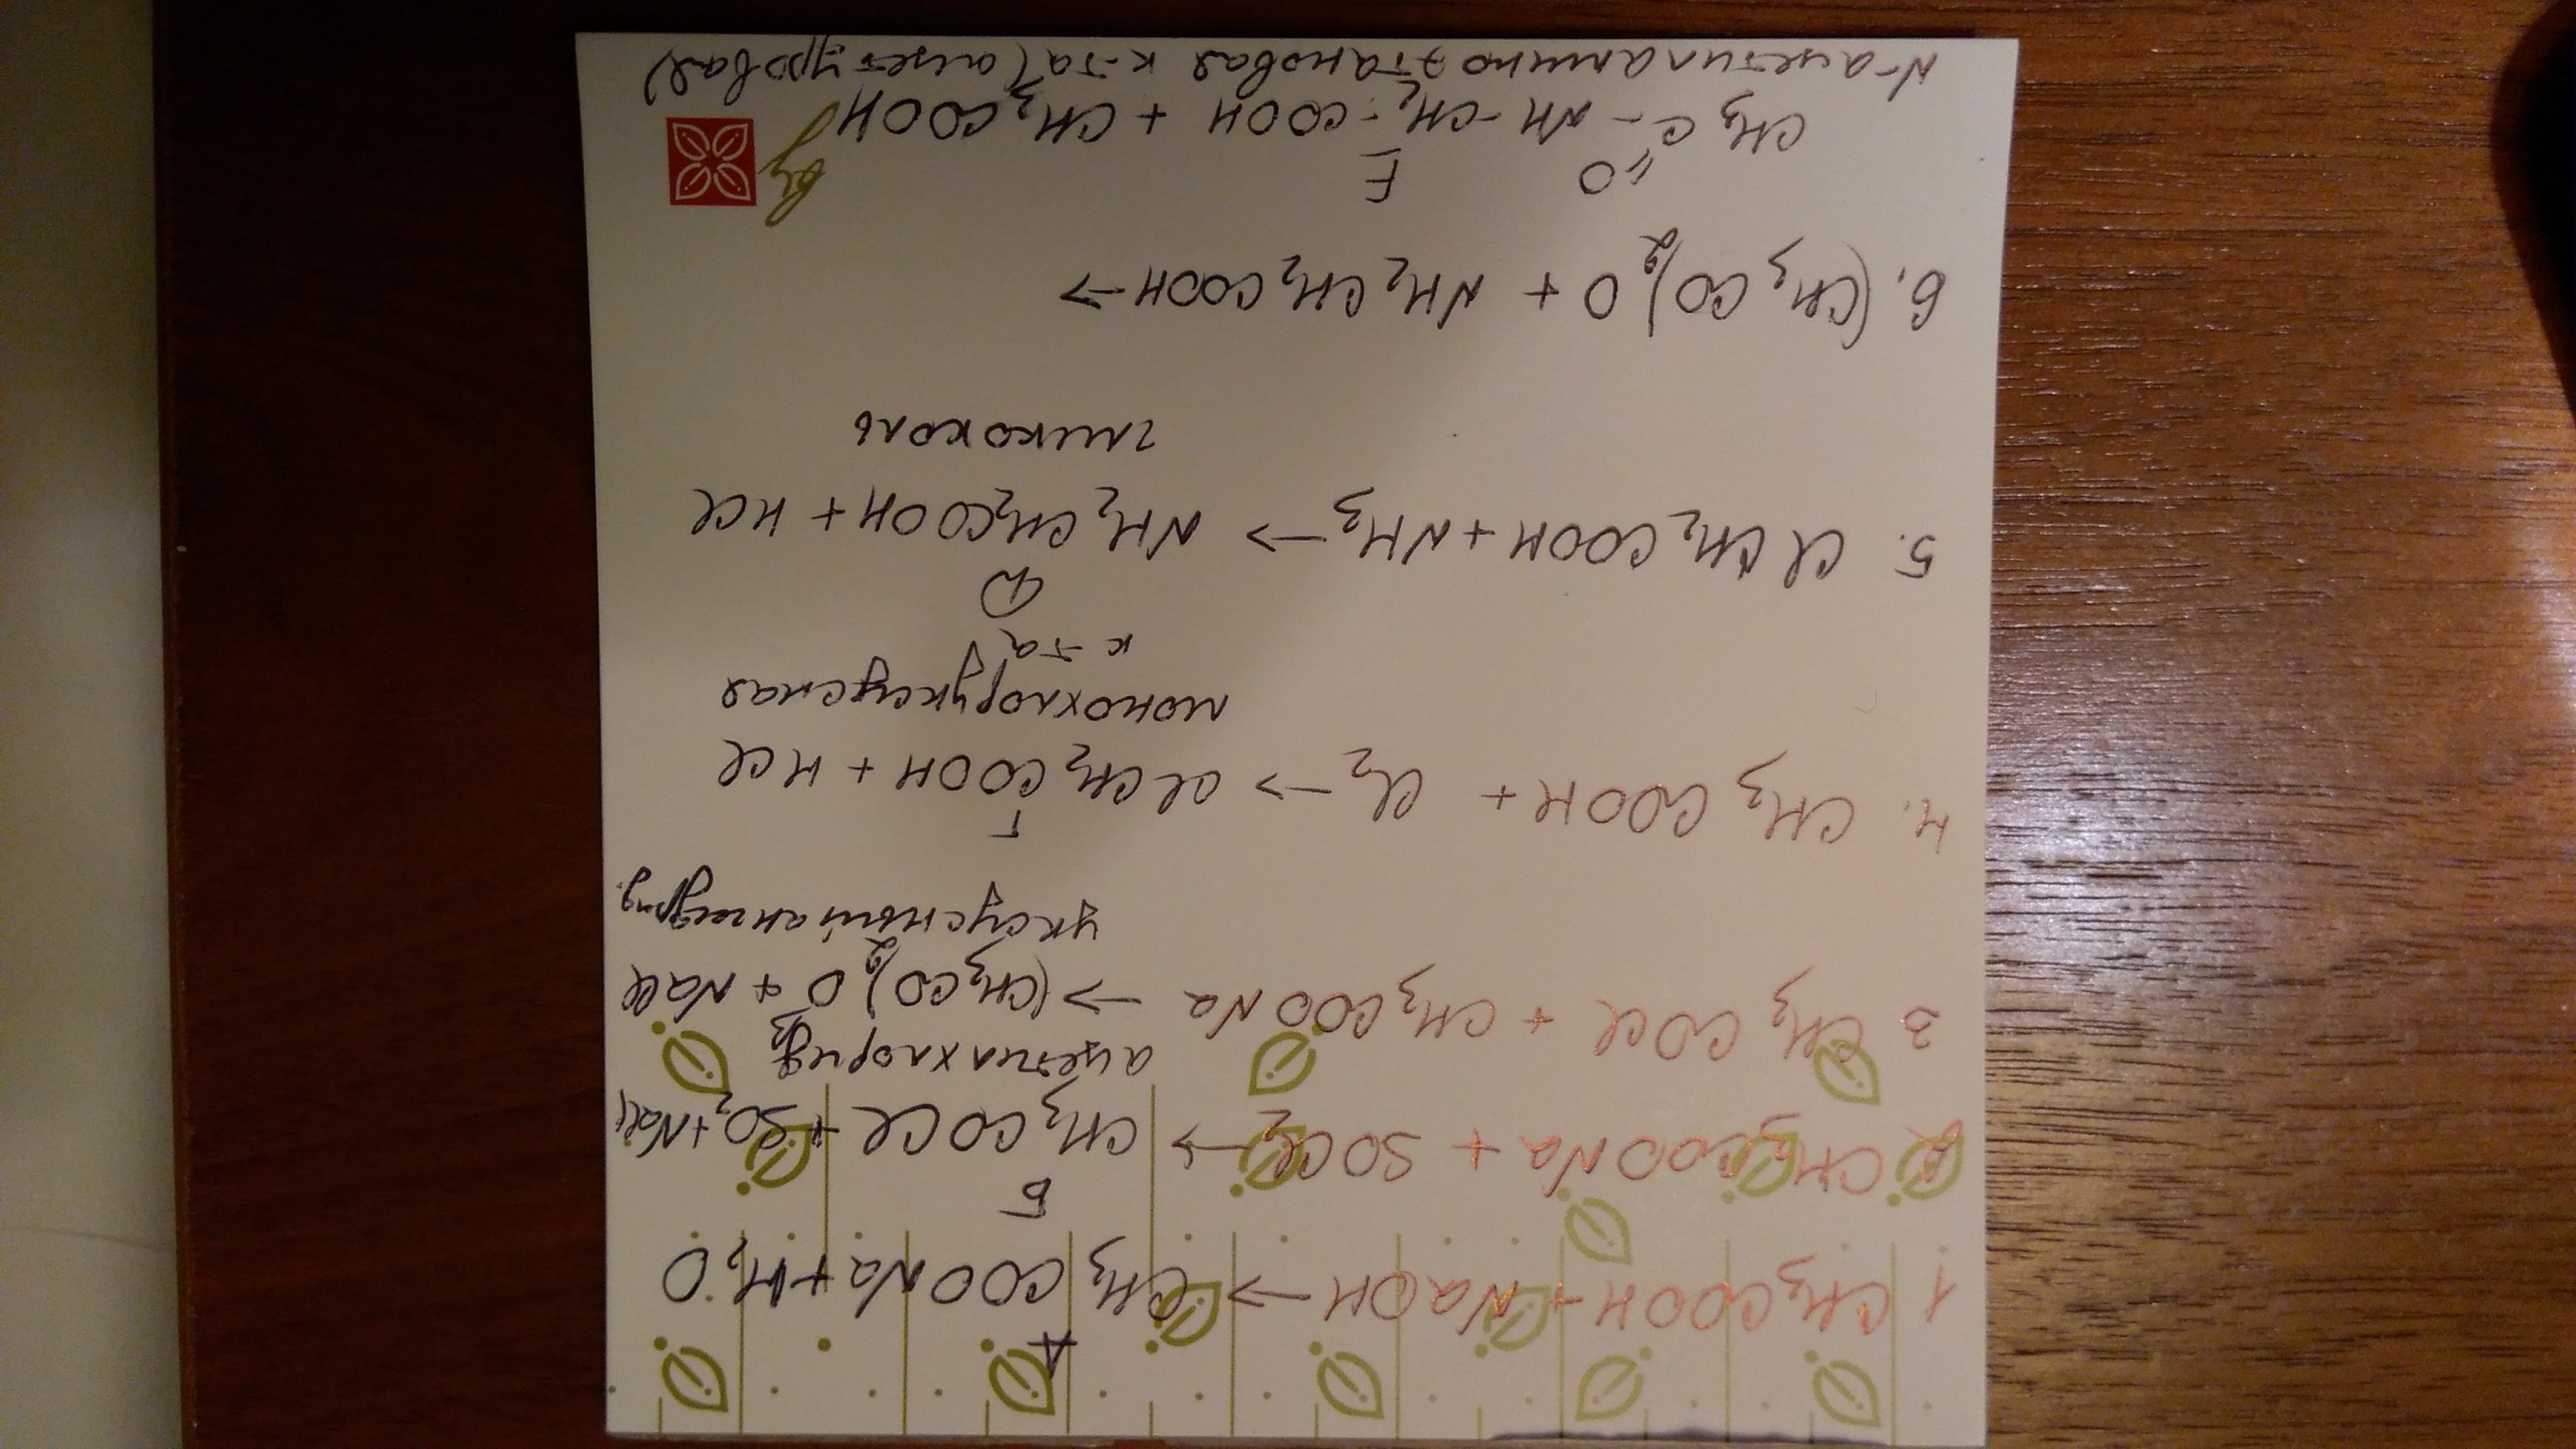 А
1 CH₃COOH + NaOH → CH₃COONa + H₂O
Б
2. CH₃COONa + SOCl₂ → CH₃COCl + SO₂ + NaCl
ацетилхлорид
В
3 CH₃COCl + CH₃COONa → (CH₃CO)₂O + NaCl
уксусный ангидрид.
Г
4. CH₃COOH + Cl₂ → ClCH₂COOH + HCl
монохлоруксусная
к-та
Д
5. ClCH₂COOH + NH₃ → NH₂CH₂COOH + HCl
гликоколь
6. (CH₃CO)₂O + NH₂CH₂COOH →
O E
CH₃C - NH - CH₂ - COOH + CH₃COOH
N-ацетиламиноэтановая к-та (ацетуровая)